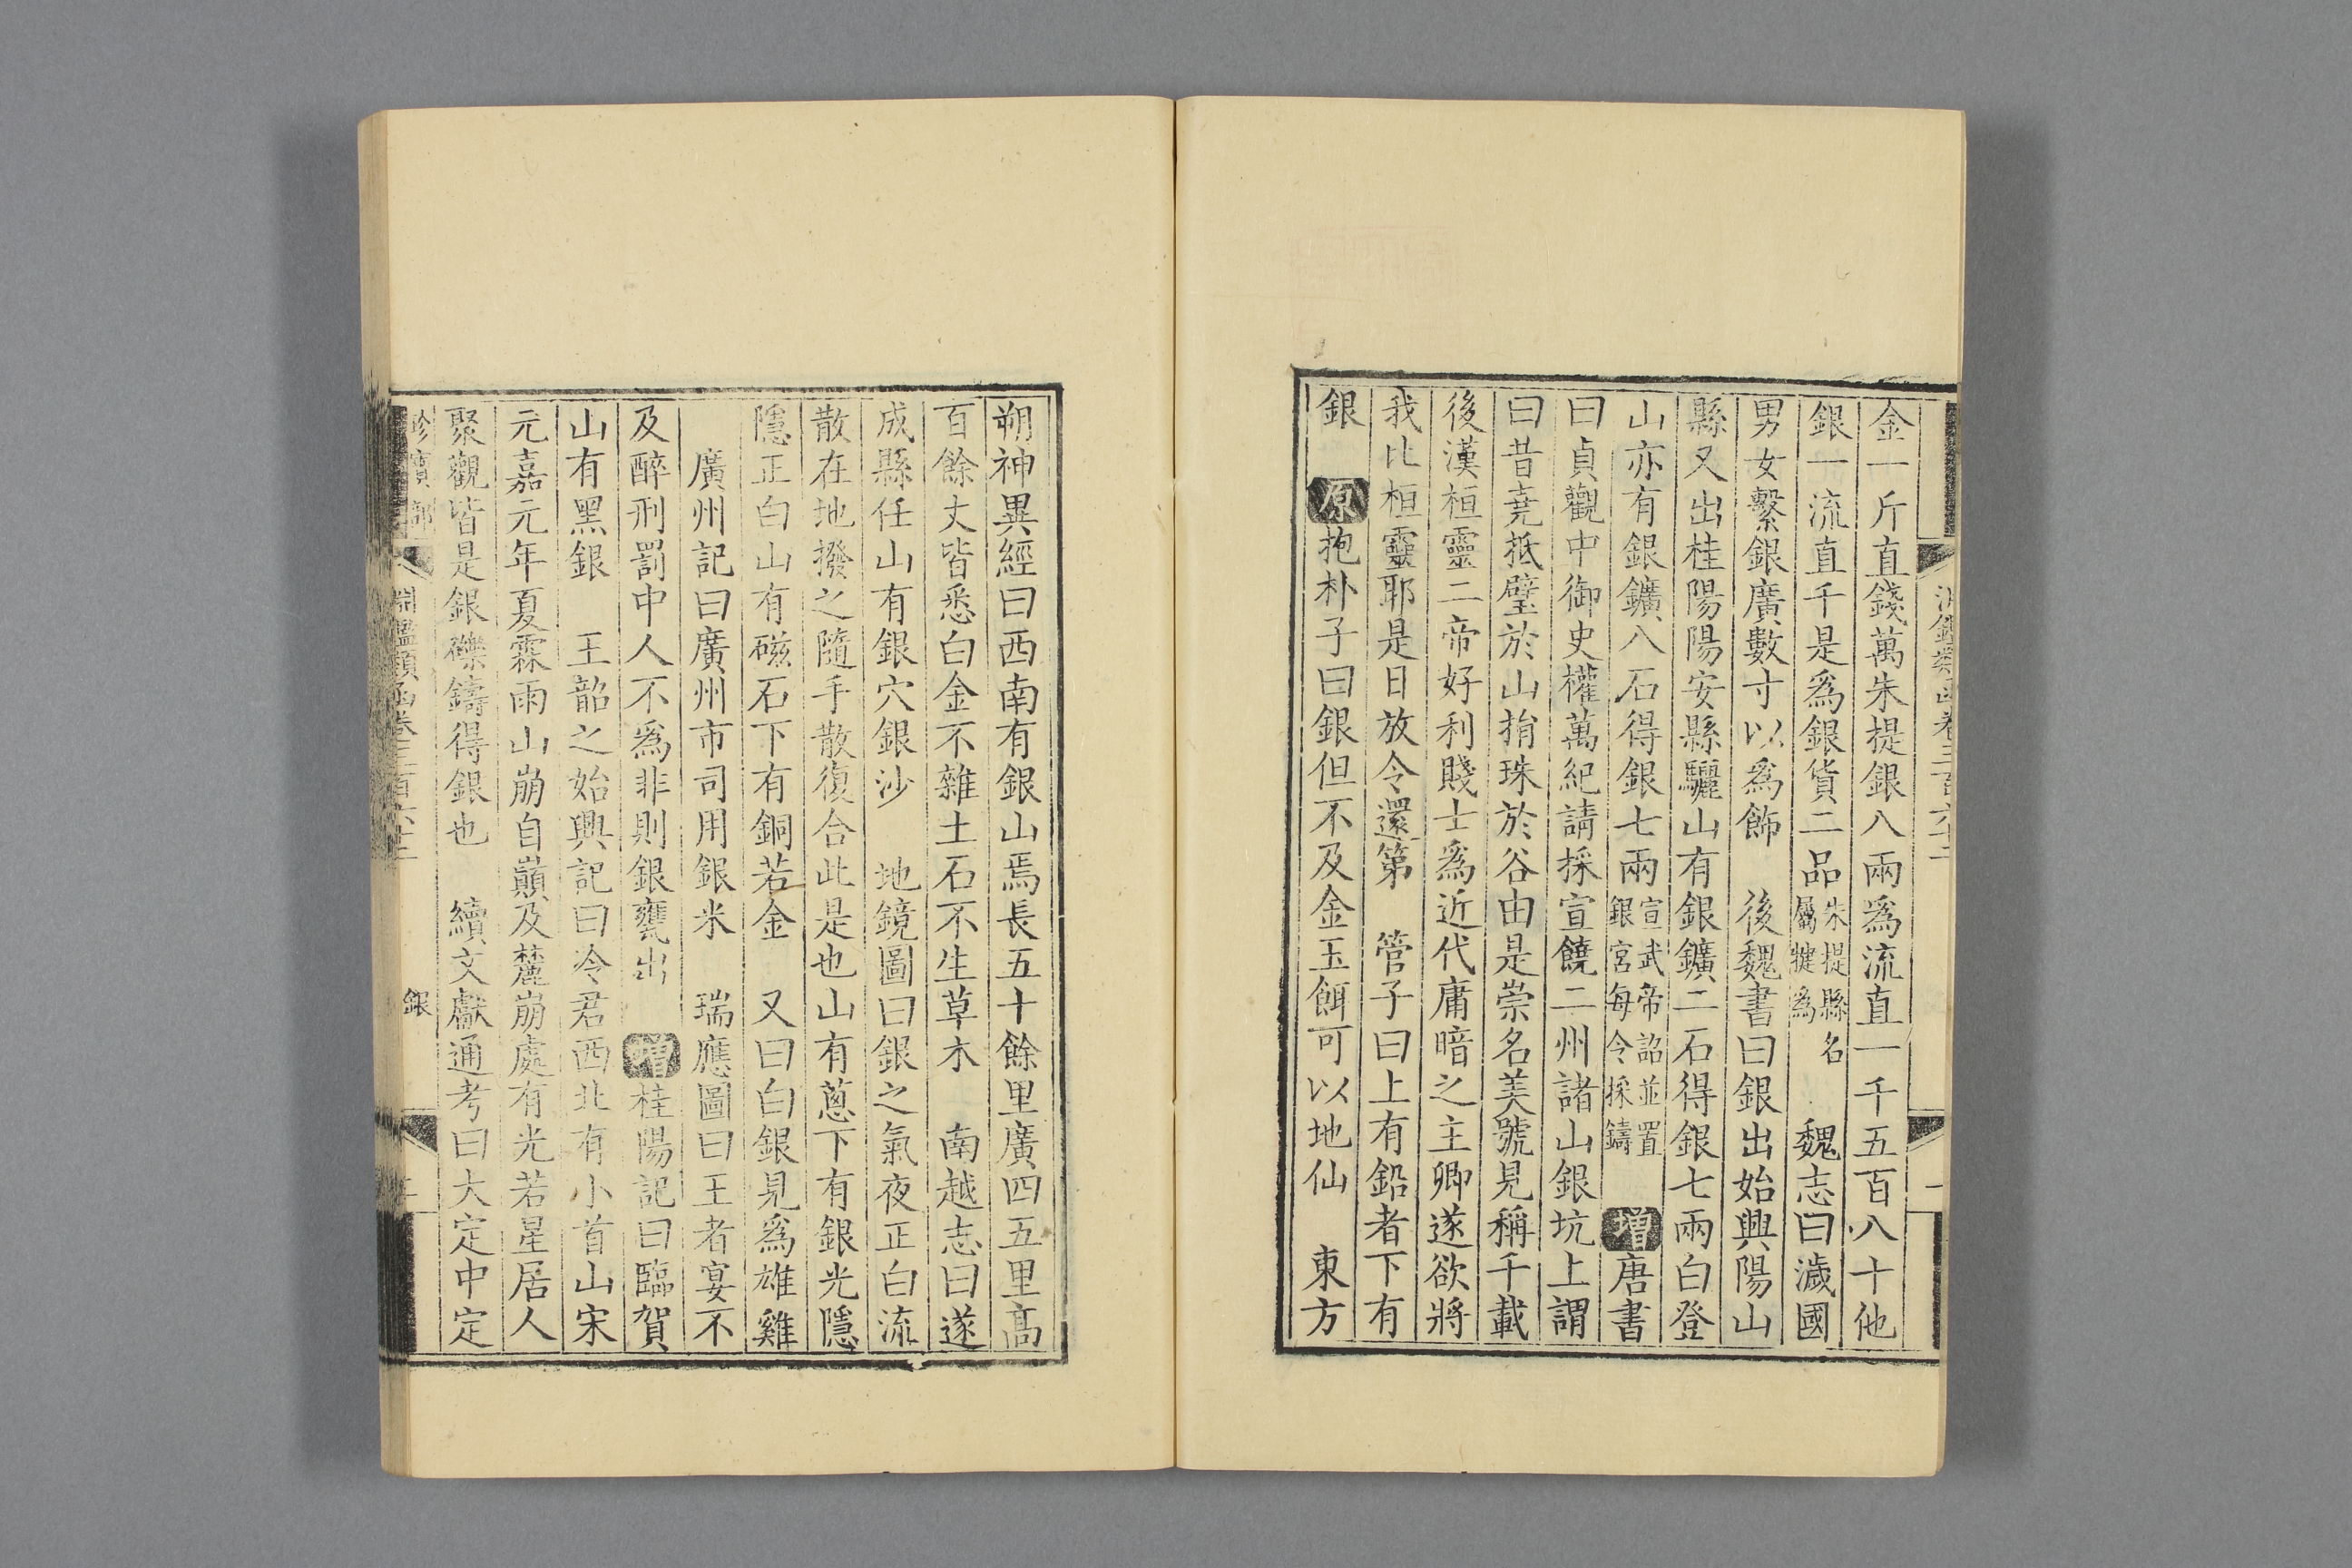 金一斤直錢萬朱提銀八兩爲流直一千五百八十他
銀一流直千是爲銀貨二品朱提縣名屬犍爲　魏志曰濊國
男女繫銀廣數寸以爲飾　後魏書曰銀出始興陽山
縣又出桂陽陽安縣驪山有銀鑛二石得銀七兩白登
山亦有銀鑛八石得銀七兩宣武帝詔並置銀宮每令採鑄　增唐書
曰貞觀中御史權萬紀請採宣饒二州諸山銀坑上謂
曰昔堯抵璧於山捐珠於谷由是崇名美號見稱千載
後漢桓靈二帝好利賤士爲近代庸暗之主卿遂欲將
我比桓靈耶是日放令還第　管子曰上有鉛者下有
銀　原抱朴子曰銀但不及金玉餌可以地仙　東方
朔神異經曰西南有銀山焉長五十餘里廣四五里高
百餘丈皆悉白金不雜土石不生草木　南越志曰遂
成縣任山有銀穴銀沙　地鏡圖曰銀之氣夜正白流
散在地撥之隨手散復合此是也山有蔥下有銀光隱
隱正白山有磁石下有銅若金　又曰白銀見爲雄雞
廣州記曰廣州市司用銀米　瑞應圖曰王者宴不
及醉刑罰中人不爲非則銀甕出　增桂陽記曰臨賀
山有黑銀　王韶之始興記曰冷君西北有小首山宋
元嘉元年夏霖雨山崩自巔及麓崩處有光若星居人
聚觀皆是銀礫鑄得銀也　續文獻通考曰大定中定
淵鑑類函卷三百六十二　銀